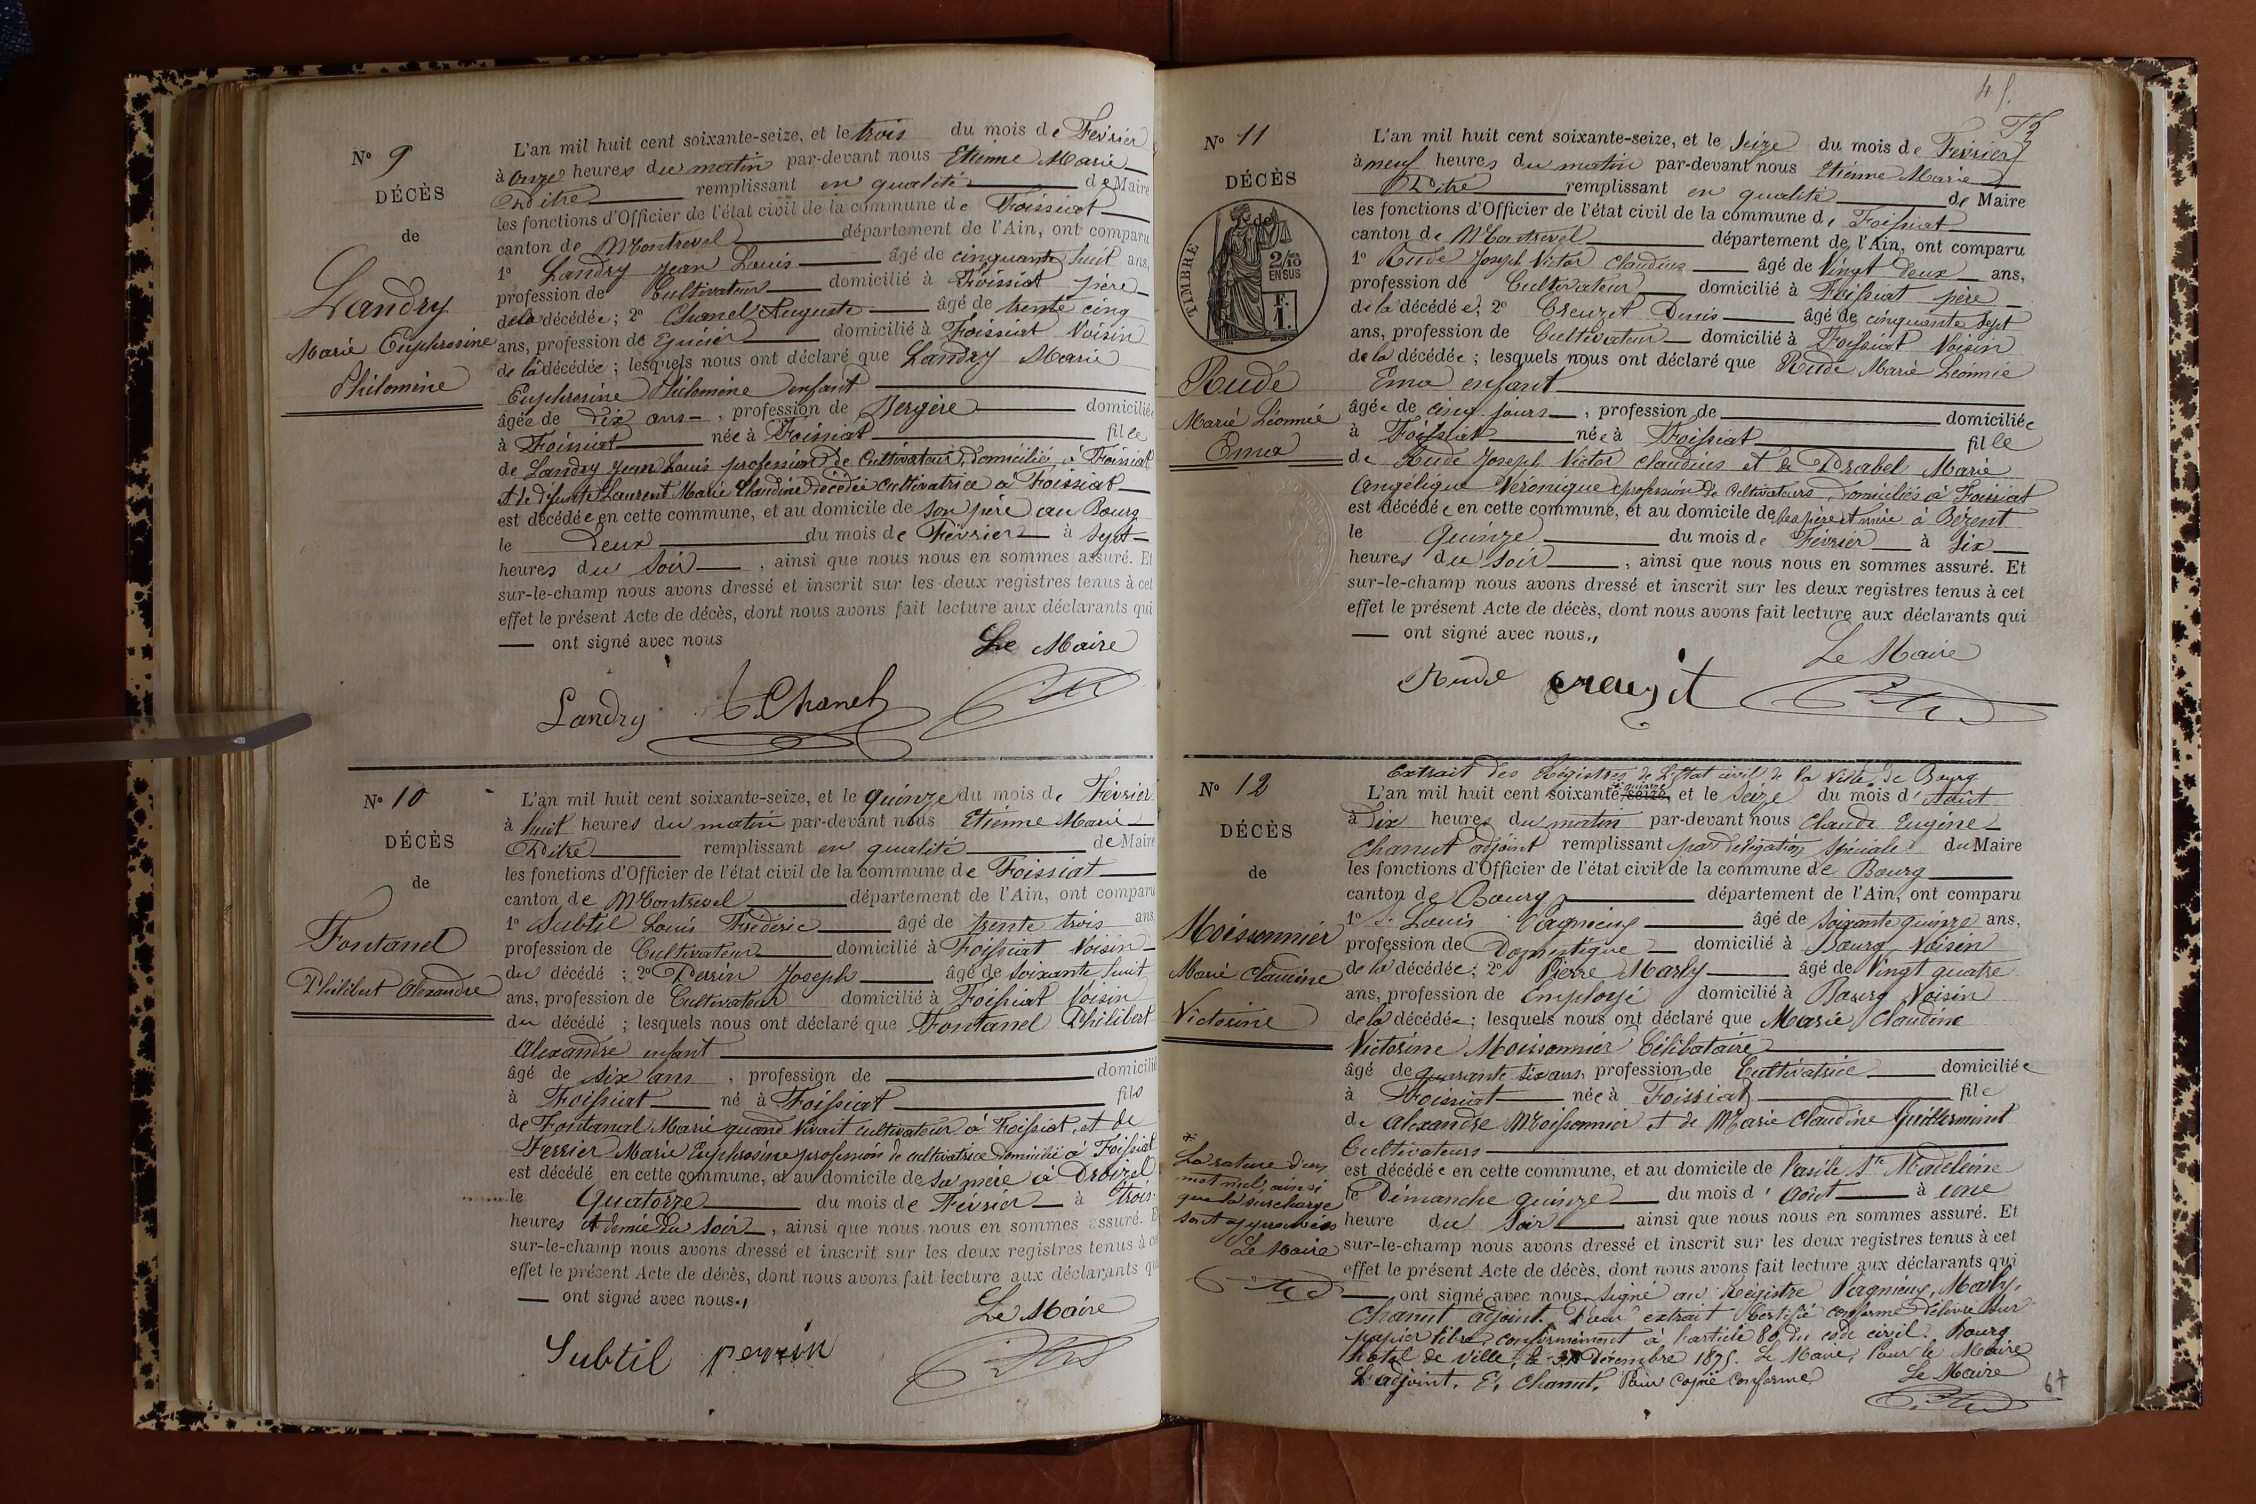 N° 9
DÉCÈS
de
Landry
Marie Euphrosine
Philomène
L'an mil huit cent soixante-seize, et le trois du mois de Février
à onze heures du matin par-devant nous Etienne Marie
Pitre remplissant en qualité de Maire
les fonctions d'Officier de l'état civil de la commune de Foissiat
canton de Montrevel département de l'Ain, ont comparu
1° Landry Jean Louis âgé de cinquante huit ans,
profession de Cultivateur domicilié à Foissiat père
de la décédée; 2° Chanel Auguste âgé de trente cinq
ans, profession de Epicier domicilié à Foissiat Voisin
de la décédée; lesquels nous ont déclaré que Landry Marie
Euphrosine Philomène enfant
âgée de dix ans, profession de Bergère domiciliée
à Foissiat née à Foissiat fille
de Landry Jean Louis profession de Cultivateur, domicilié à Foissiat
et de défunte Laurent Marie Claudine décédée cultivatrice à Foissiat
est décédée en cette commune, et au domicile de son père au Bourg
le deux du mois de Février à sept
heures du soir, ainsi que nous nous en sommes assuré. Et
sur-le-champ nous avons dressé et inscrit sur les deux registres tenus à cet
effet le présent Acte de décès, dont nous avons fait lecture aux déclarants qui
ont signé avec nous
Le Maire
Landry Chanel
N° 10
DÉCÈS
de
Fontanel
Philibert Alexandre
L'an mil huit cent soixante-seize, et le quinze du mois de Février
à huit heures du matin par-devant nous Etienne Marie
Pitre remplissant en qualité de Maire
les fonctions d'Officier de l'état civil de la commune de Foissiat
canton de Montrevel département de l'Ain, ont comparu
1° Subtil Louis Frédéric âgé de trente trois ans
profession de Cultivateur domicilié à Foissiat Voisin
du décédé; 2° Perrin Joseph âgé de soixante huit
ans, profession de Cultivateur domicilié à Foissiat Voisin
du décédé; lesquels nous ont déclaré que Fontanel Philibert
Alexandre enfant
âgé de six ans, profession de domicilié
à Foissiat né à Foissiat fils
de Fontanel Marie quand vivait cultivateur à Foissiat, et de
Ferrier Marie Euphrosine profession de cultivatrice domicilié à Foissiat
est décédé en cette commune, et au domicile de sa mère à
le Quatorze du mois de Février à trois
heures et demie du soir, ainsi que nous nous en sommes assuré. E
sur-le-champ nous avons dressé et inscrit sur les deux registres tenus à ce
effet le présent Acte de décès, dont nous avons fait lecture aux déclarants qu
ont signé avec nous.
Le Maire
Subtil perrin
45
N° 11
DÉCÈS
de
TIMBRE
2/10
EN SUS
F.
1.
Rude
Marie Léonnie
Ema
L'an mil huit cent soixante-seize, et le seize du mois de Février
à neuf heures du matin par-devant nous Etienne Marie
Pitre remplissant en qualité de Maire
les fonctions d'Officier de l'état civil de la commune de Foissiat
canton de Montrevel département de l'Ain, ont comparu
1° Rude Joseph Victor Claudius âgé de Vingt deux ans,
profession de Cultivateur domicilié à Foissiat père
de la décédée; 2° Creuzet Denis âgé de cinquante sept
ans, profession de Cultivateur domicilié à Foissiat Voisin
de la décédée; lesquels nous ont déclaré que Rude Marie Léonnie
Ema enfant
âgée de cinq jours, profession de domiciliée
à Foissiat née à Foissiat fille
de Rude Joseph Victor Claudius et de Drabel Marie
Angélique Véronique profession de Cultivateurs, domiciliés à Foissiat
est décédée en cette commune, et au domicile de ses père et mère à Bézent
le Quinze du mois de Février à six
heures du soir, ainsi que nous nous en sommes assuré. Et
sur-le-champ nous avons dressé et inscrit sur les deux registres tenus à cet
effet le présent Acte de décès, dont nous avons fait lecture aux déclarants qui
ont signé avec nous.
Le Maire
Rude creuzet
N° 12
DÉCÈS
de
Moissonnier
Marie Claudine
Victorine
Extrait des Régistres de l'Etat civil de la Ville de Bourg
L'an mil huit cent soixante *quinze seize, et le seize du mois d'Août
à dix heures du matin par-devant nous Claude Eugène
Chanut adjoint remplissant par délégation spéciale du Maire
les fonctions d'Officier de l'état civil de la commune de Bourg
canton de Bourg département de l'Ain, ont comparu
1° Louis Pagnieux âgé de soixante quinze ans,
profession de Domestique domicilié à Bourg Voisin
de la décédée; 2° Pierre Marly âgé de Vingt quatre
ans, profession de Employé domicilié à Bourg Voisin
de la décédée; lesquels nous ont déclaré que Marie Claudine
Victorine Moissonnier Célibataire
âgée de quarante six ans, profession de Cultivatrice domiciliée
à Foissiat née à Foissiat fille
de Alexandre Moissonnier et de Marie Claudine Guillerminet
Cultivateurs
est décédée en cette commune, et au domicile de l'asile Ste Madeleine
le Dimanche quinze du mois d'août à une
heure du soir, ainsi que nous nous en sommes assuré. Et
sur-le-champ nous avons dressé et inscrit sur les deux registres tenus à cet
effet le présent Acte de décès, dont nous avons fait lecture aux déclarants qui
ont signé avec nous. Signé au Registre Pagnieux, Marly,
Chanut adjoint. Pour extrait Certifié conforme délivré sur
papier libre conformément à l'article 80 du code civil. Bourg
hôtel de Ville, le 31 Décembre 1875. Le Maire, Pour le Maire
L'adjoint, E. Chanut. Pour copie conforme
Le Maire
*
La rature d'un
mot nul, ainsi
que la surcharge
sont approuvées
Le Maire
67